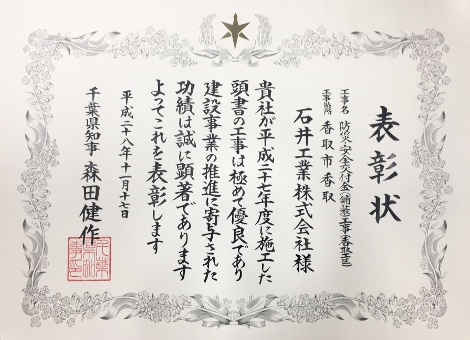 表彰状
工事名 防災・安全交付金(舗装)工事(香取工区)
工事箇所 香取市香取
石井工業株式会社様
貴社が平成二十七年度に施工した
頭書の工事は極めて優良であり
建設事業の推進に寄与された
功績は誠に顕著であります
よってこれを表彰します
平成二十八年十一月十七日
千葉県知事 森田健作